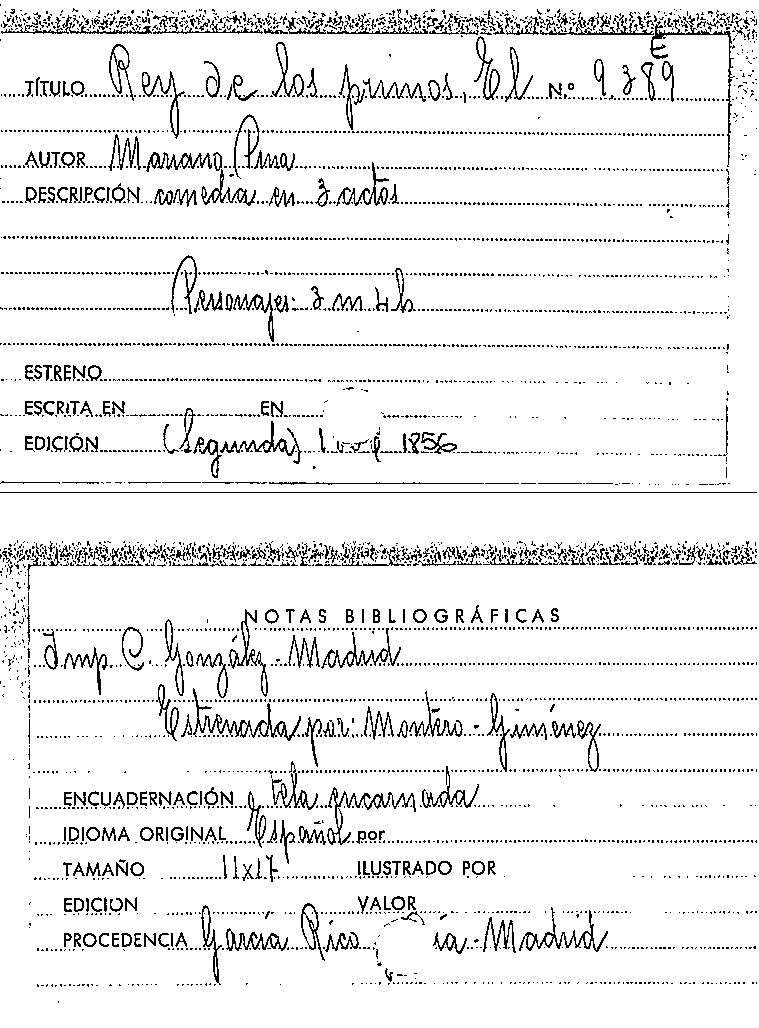 E
TÍTULO Rey de los primos, El N.º 9.389
AUTOR Mariano Pina
DESCRIPCIÓN comedia en 3 actos
Personajes: 3 m 4 h
ESTRENO
ESCRITA EN EN
EDICIÓN (Segunda) 1856
NOTAS BIBLIOGRÁFICAS
Imp C. González - Madrid
Estrenada por: Montero - Giménez
ENCUADERNACIÓN tela encarnada
IDIOMA ORIGINAL Español por
TAMAÑO 11x17 ILUSTRADO POR
EDICION VALOR
PROCEDENCIA García Rico ía - Madrid